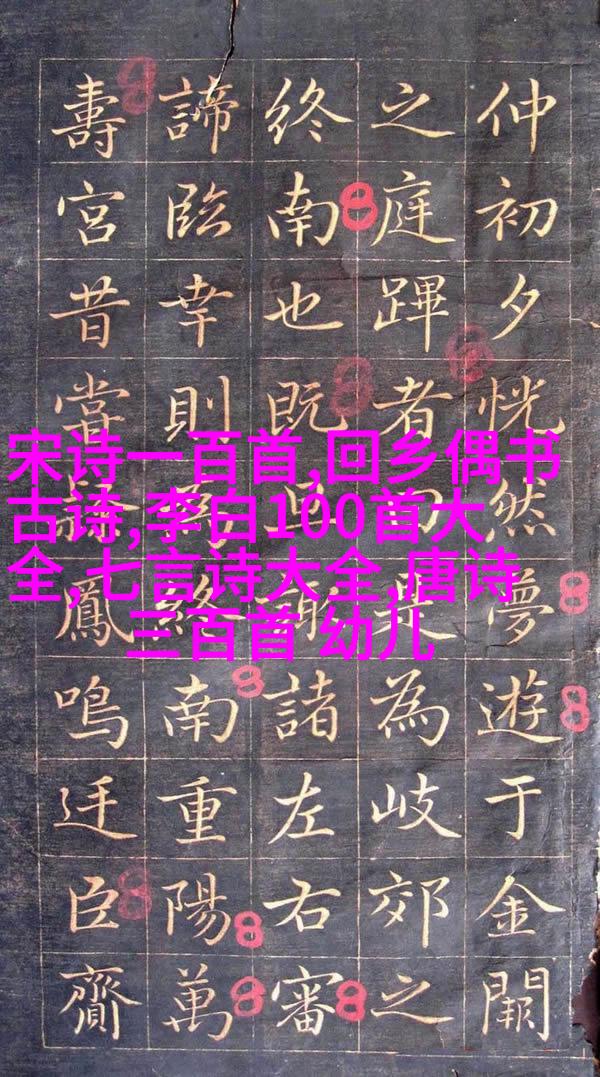 宋诗一百首,回乡偶书
古诗,李白100首大
全,七言诗大全,唐诗
三百首 幼儿
仲初夕恍然夢遊于金闕
之庭蹕者果為岐郊之
終南也既諸左右審
諦臨幸則終南重陽萬
壽宮昔鳳鳴廷臣齎